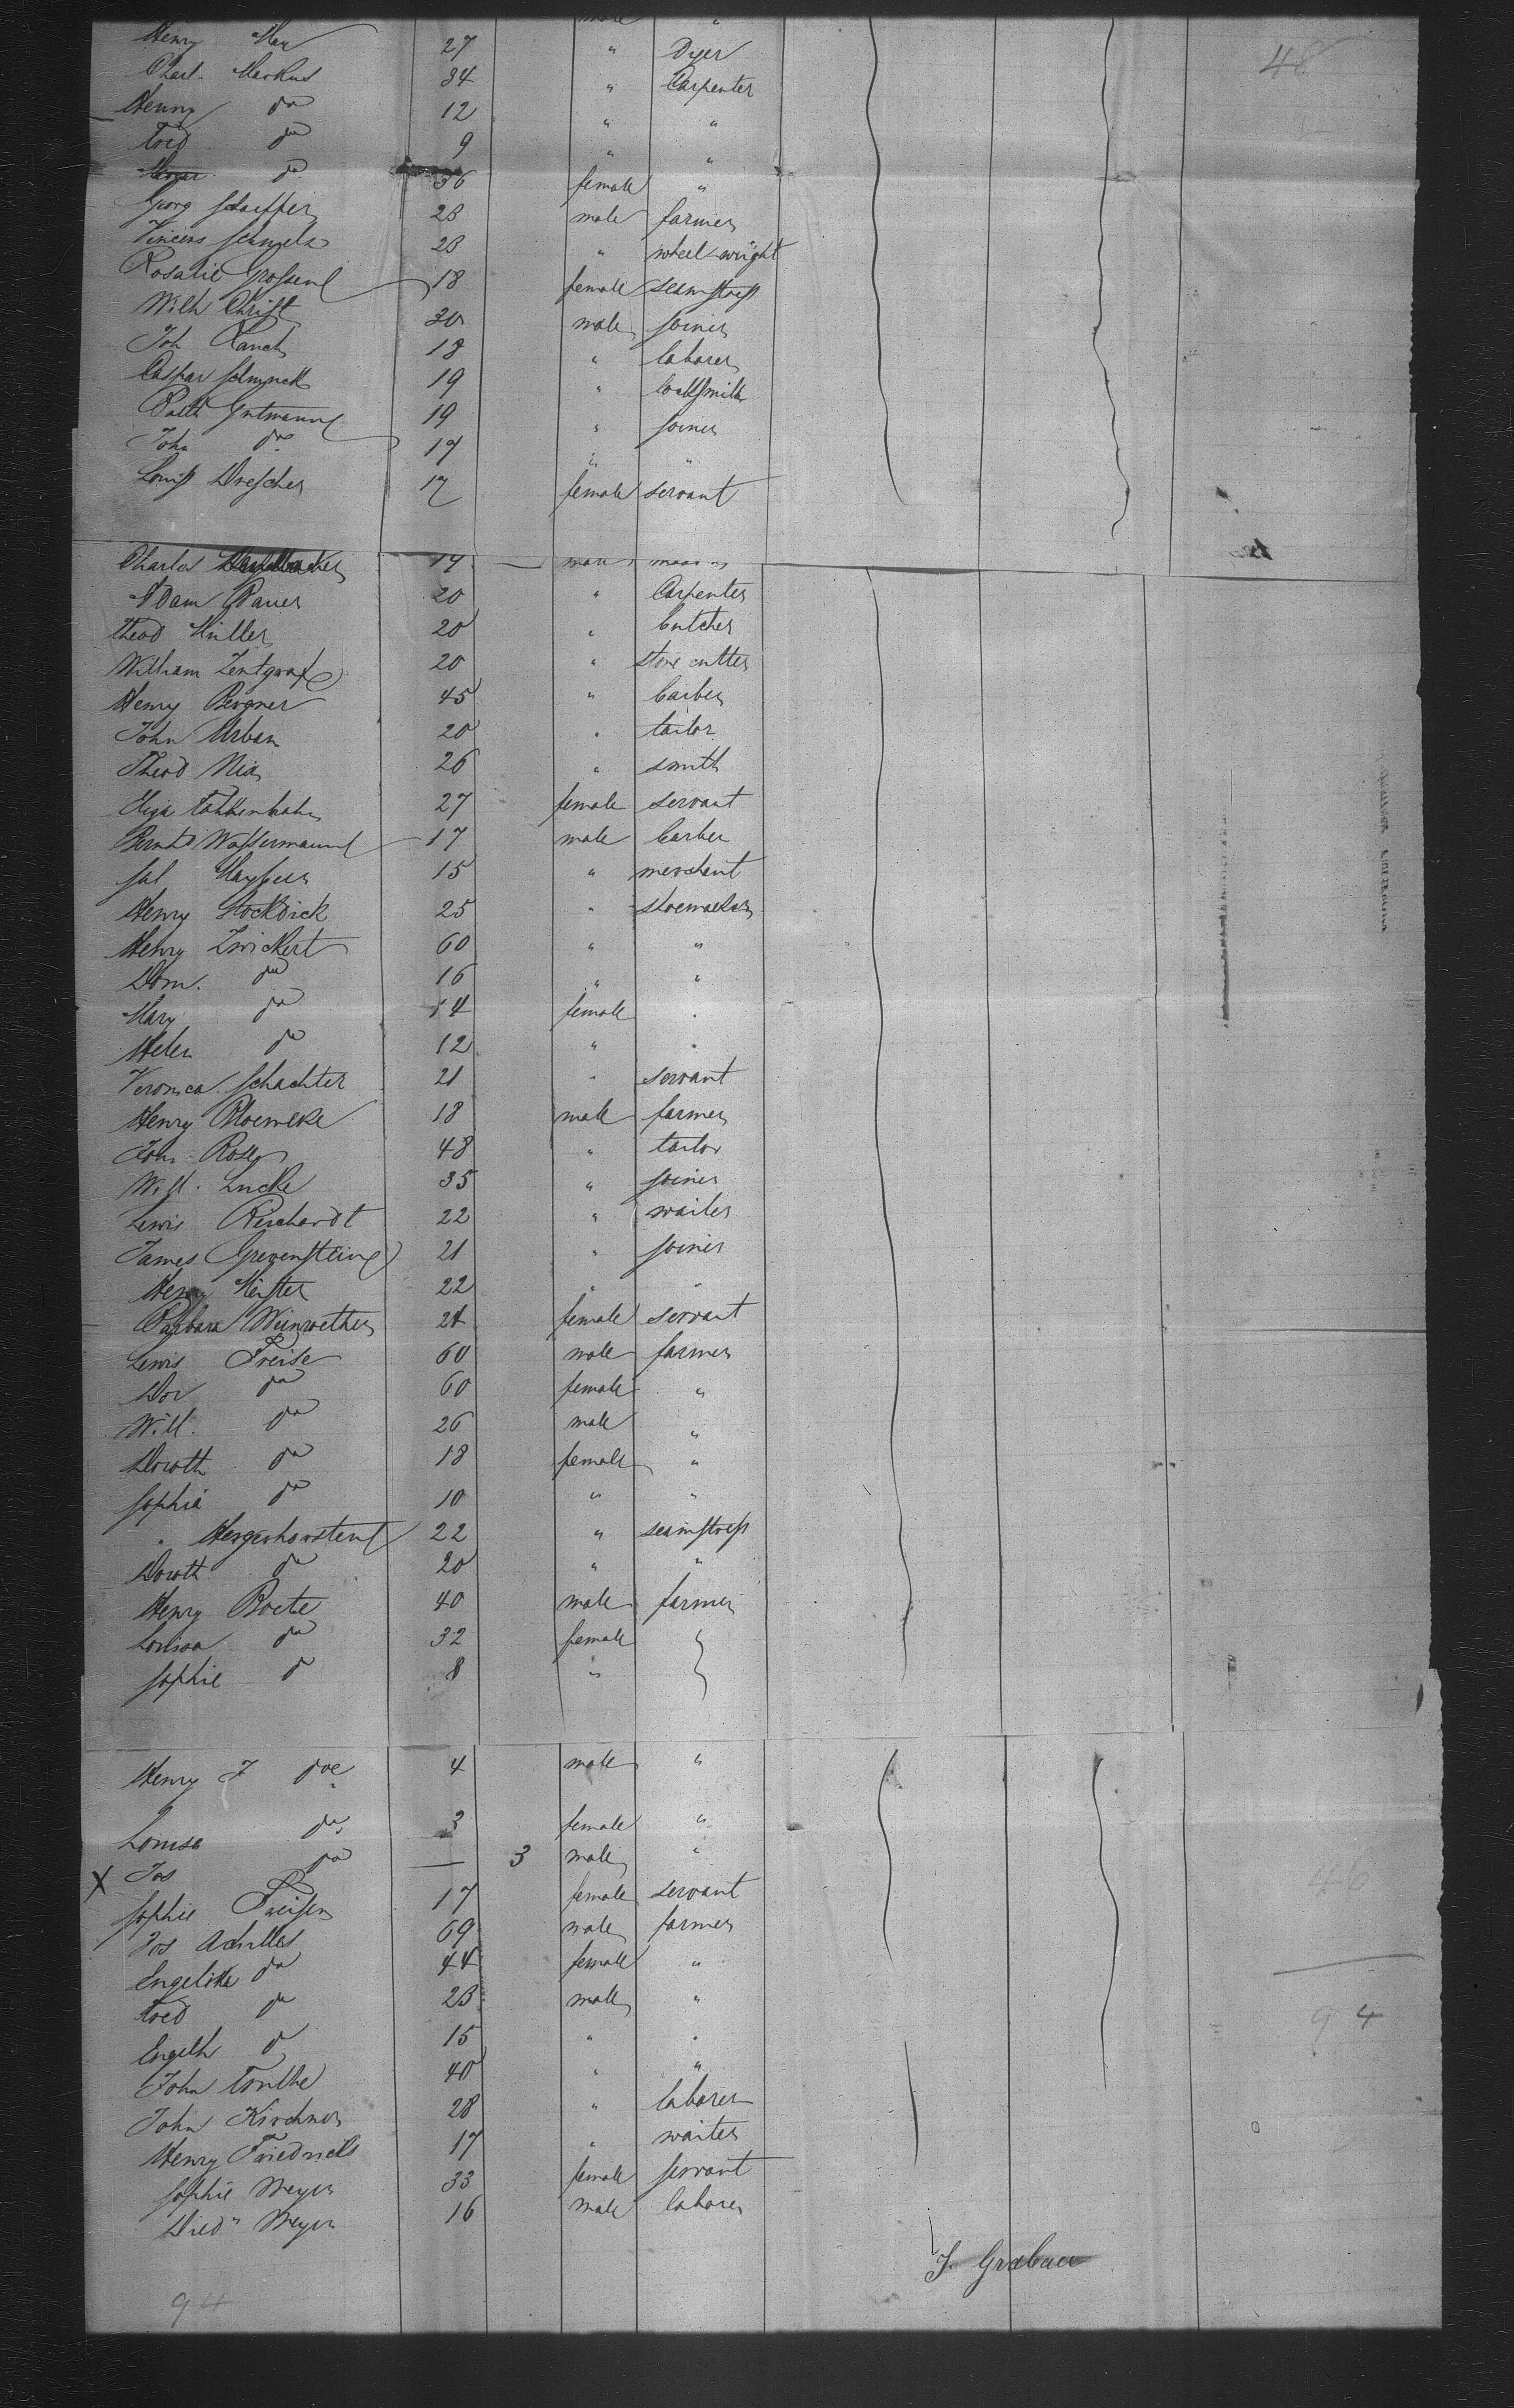 male "
Henry May 27 " Dyer
48
Charl. Markus 34 " Carpenter
Henry do 12 " "
Fred do 9 " "
do 36 female "
Georg Schaeffer 23 male farmer
Vincens 23 " wheel-wright
Rosalie 18 female seamstress
Wilh Christ 30 male joiner
Joh Rauch 18 " laborer
Caspar 19 " locksmith
Balth Gutmann 19 " joiner
John do 17 " "
Louis Drescher 17 female servant
Charles 17 male mason
Adam Bauer 20 " Carpenter
Theod Müller 20 " butcher
William Zentgraf 20 " stone cutter
Henry Bergner 45 " barber
John Urban 20 " tailor
Theod Nix 26 " smith
Eliza 27 female servant
Bernhd Wassermann 17 male barber
Sal 15 " merchant
Henry Stockdick 25 " shoemaker
Henry Zwickert 60 " "
Dom. do 16 " "
Mary do 14 female "
Helen do 12 " "
Veronica Schachter 21 " servant
Henry 18 male farmer
John 48 " tailor
Will. Lucke 35 " joiner
Lewis Reichardt 22 " waiter
James Grevenstein 21 " joiner
Henry Meister 22 " "
Barbara 21 female servant
Lewis Freise 60 male farmer
Dor do 60 female "
Will. do 26 male "
Doroth do 18 female "
Sophia do 10 " "
" 22 " seamstress
Doroth do 20 " "
Henry Boete 40 male farmer
Louisa do 32 female
Sophie do 8 "
Henry F do 4 male "
Louisa do 3 female "
X Jos do — 3 male "
46
Sophie 17 female servant
Jos Achilles 69 male farmer
Engelike do 44 female "
Fred do 23 male "
94
Engelh do 15 " "
John 40 " "
John Kirchner 28 " laborer
Henry Friedrichs 17 " waiter
Sophie Meyer 33 female servant
Died" Meyer 16 male laborer
J. Grabau
94